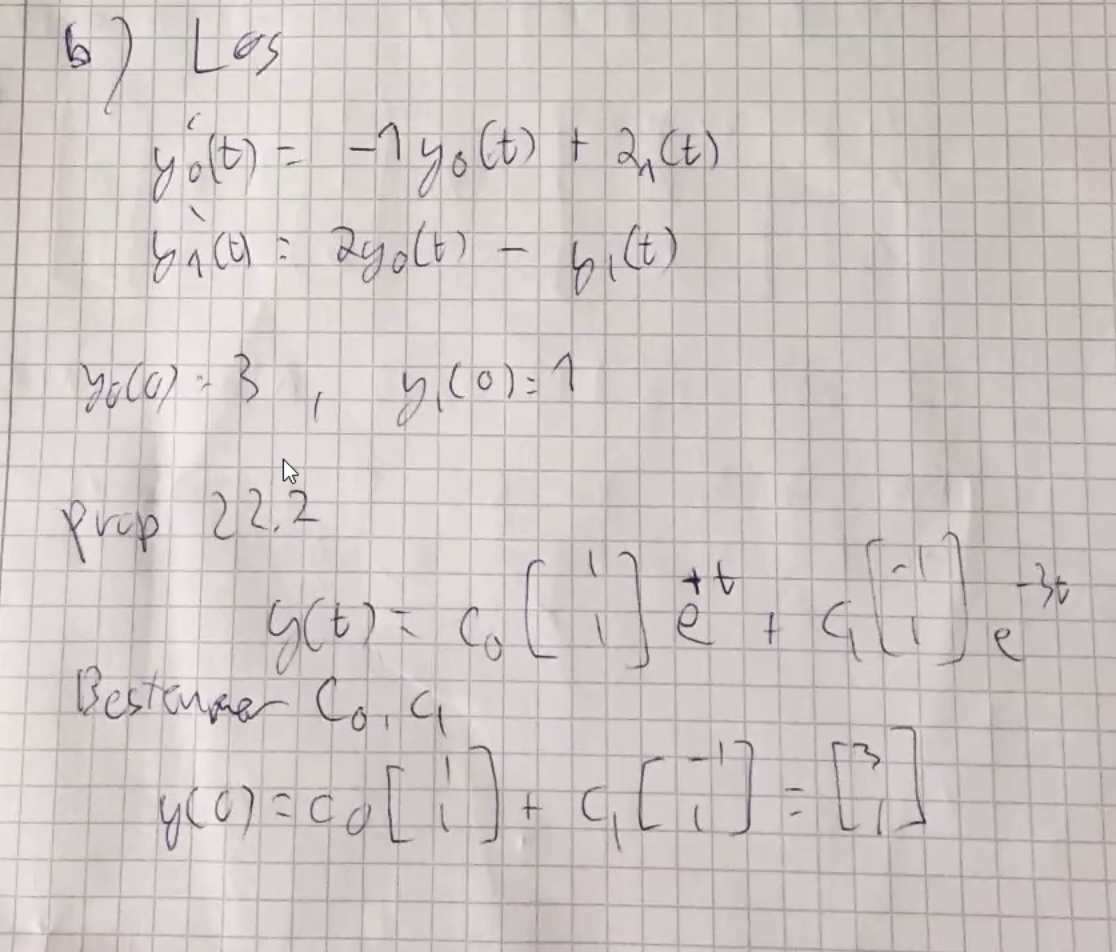 b) Løs
y₀'(t) = -1 y₀(t) + 2₁(t)
y₁'(t) = 2y₀(t) - y₁(t)
y₀(0) = 3 , y₁(0) = 1
prop 22.2
y(t) = c₀ [1 1] e^{+t} + c₁ [-1 1] e^{-3t}
Bestemmer c₀, c₁
y(0) = c₀ [1 1] + c₁ [-1 1] = [3 1]